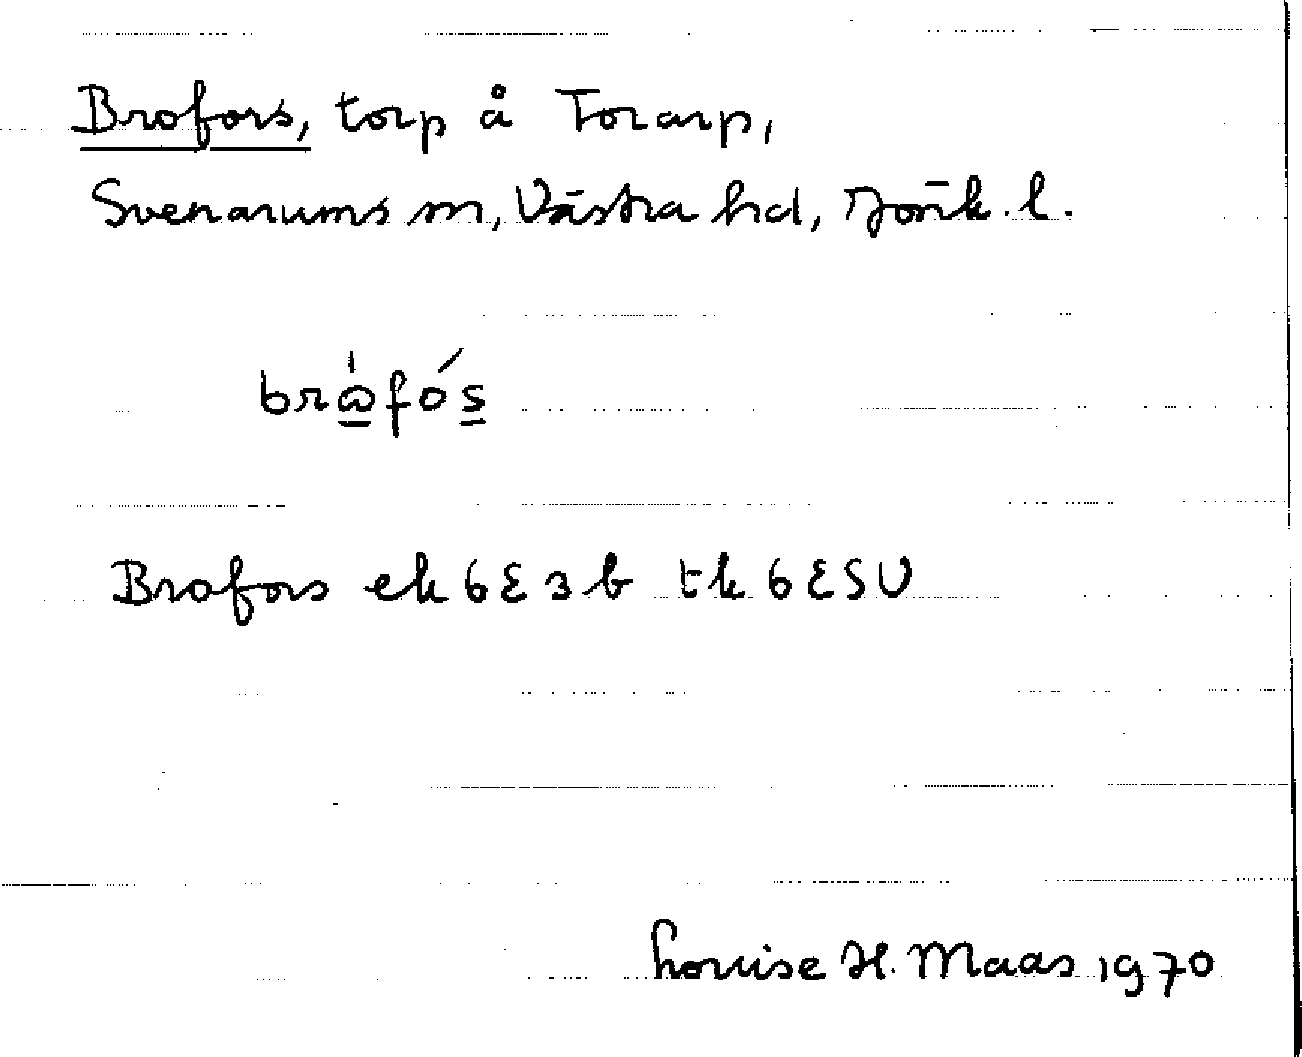 Brofors, torp å Torarp,
Svenarums sn, Västra hd, Jönk. l.
brὼ̲fó́s̲
Brofors ek 6E3b tk 6ESV
Louise H. Maas 1970